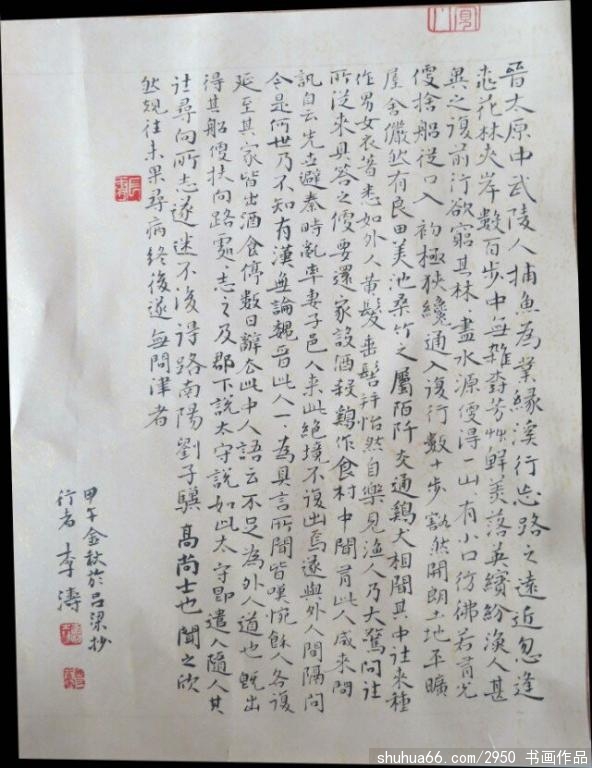 晉太原中武陵人捕魚為業緣溪行忘路之遠近忽逢
桃花林夾岸數百步中無雜樹芳草鮮美落英繽紛漁人甚
異之復前行欲窮其林林盡水源便得一山有小口彷彿若有光
便捨船從口入初極狹纔通人復行數十步豁然開朗土地平曠
屋舍儼然有良田美池桑竹之屬陌阡交通鷄犬相聞其中往來種
作男女衣著悉如外人黃髮垂髫并怡然自樂見漁人乃大驚問
所從來具答之便要還家設酒殺鷄作食村中聞有此人咸來問
訊自云先世避秦時亂率妻子邑人來此絕境不復出焉遂與外人間隔問
今是何世乃不知有漢無論魏晉此人一一為具言所聞皆嘆惋餘人各復
延至其家皆出酒食停數日辭去此中人語云不足為外人道也既出
得其船便扶向路處處志之及郡下說太守說如此太守即遣人隨其
往尋向所志遂迷不復得路南陽劉子驥高尚士也聞之欣
然規往未果尋病終後遂無問津者
甲午金秋於呂梁抄
行者李濤
shuhua66.com/2950 书画作品